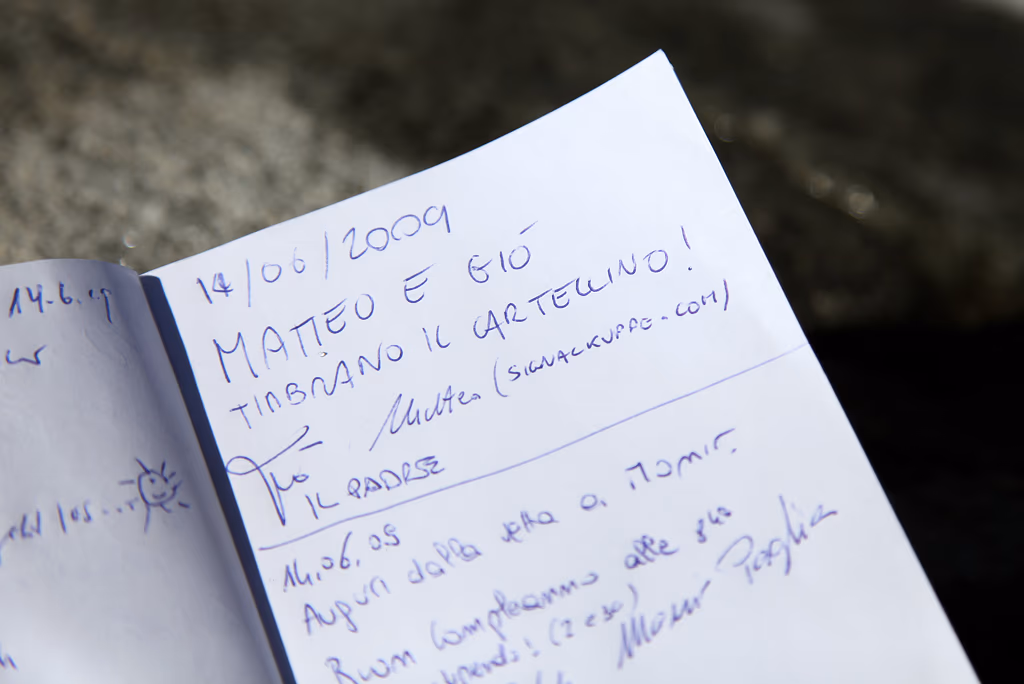 14.6.09
14/06/2009
MATTEO E GIÓ
TIMBRANO IL CARTELLINO!
Matteo (SIGNALKUPPE.COM)
Gió
IL PADRSE
14.06.09
Auguri dalla vetta a Momir.
Buon Compleanno alle
(2 e 30)
Momir Paglia